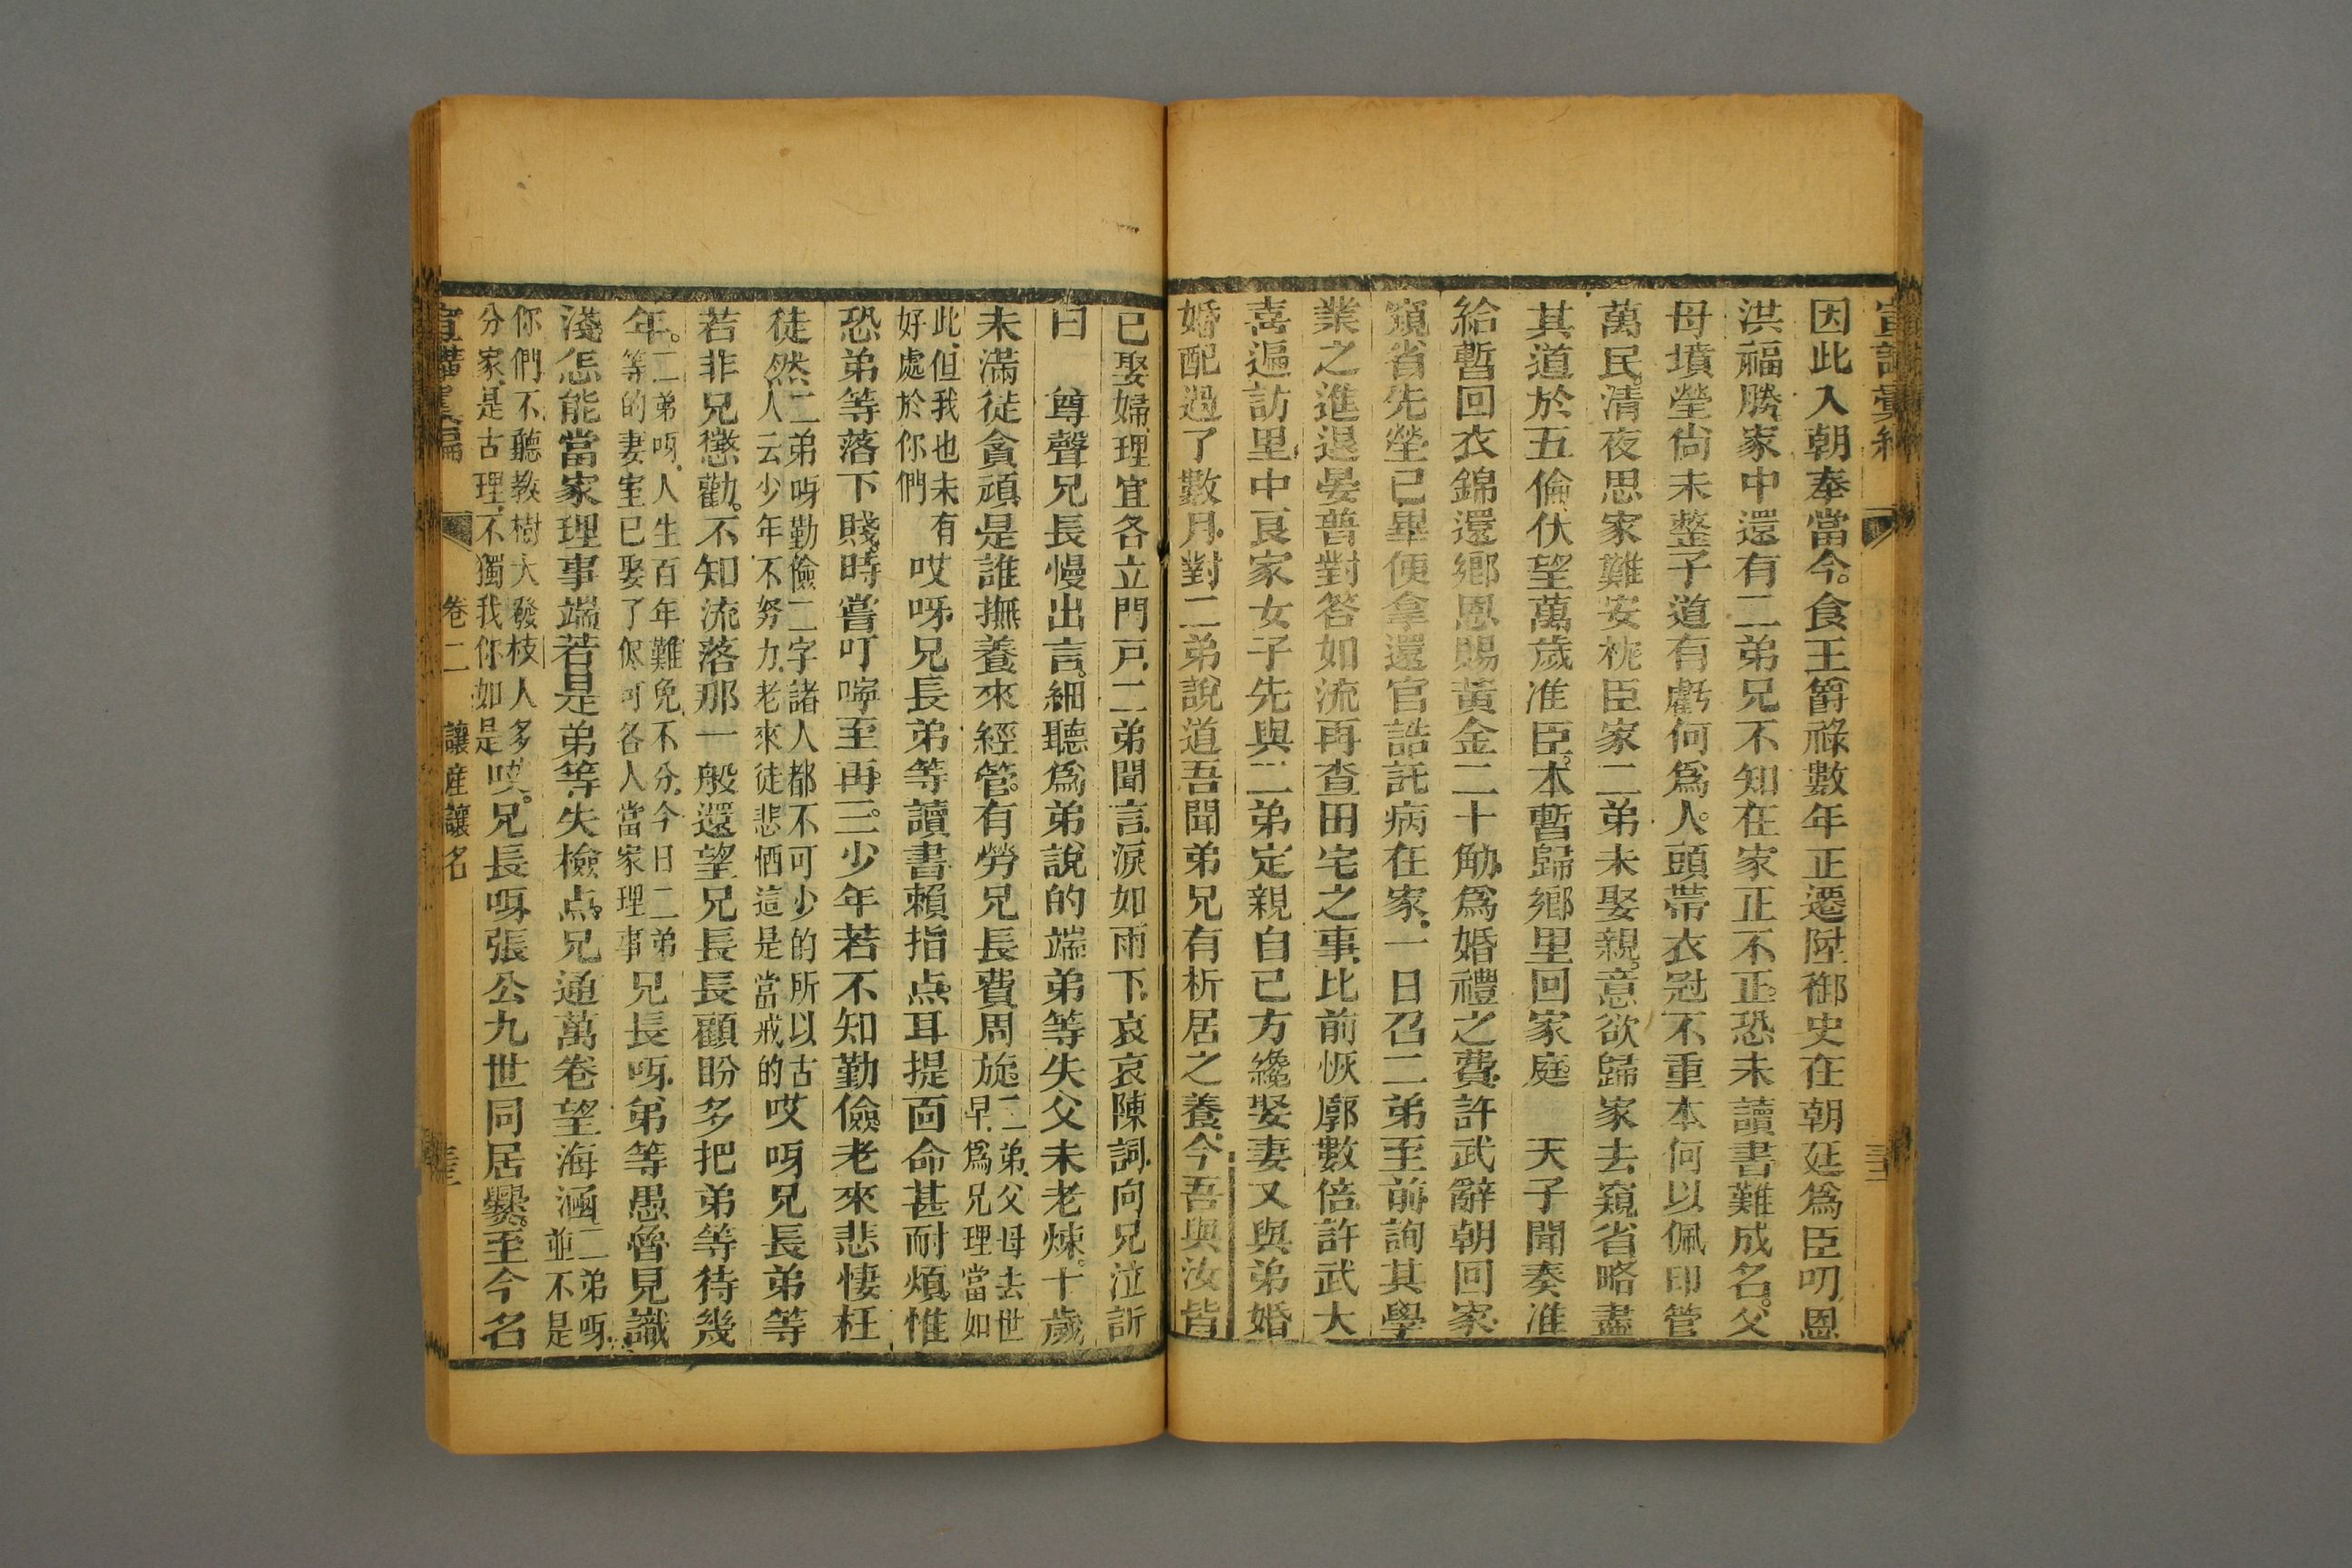 因此入朝奉當今。食王爵祿數年正遷陞御史在朝廷爲臣叨恩
洪福勝家中還有二弟兄不知在家正不正。恐未讀書難成名。父
母墳塋尙未整子道有虧何爲人。頭帶衣冠不重本何以佩印管
萬民。清夜思家難安枕臣家二弟未娶親。意欲歸家去窺省略盡
其道於五倫伏望萬歲准臣。本暫歸鄉里回家庭 天子聞奏准
給暫回衣錦還鄉恩賜黃金二十觔爲婚禮之費。許武辭朝回家
窺省先塋已畢便拿還官誥託病在家。一日召二弟至前詢其學
業之進退晏普對答如流再查田宅之事比前恢廓數倍許武大
喜遍訪里中良家女子先與二弟定親自己方纔娶妻又與弟婚
婚配過了數月對二弟說道吾聞弟兄有析居之養今吾與汝皆
已娶婦理宜各立門戶二弟聞言淚如雨下哀哀陳詞向兄泣訴
曰 尊聲兄長慢出言。細聽爲弟說的端弟等失父未老煉。十歲
未滿從貪頑是誰撫養來經管。有勞兄長費周旋二弟父母去世
早爲兄理當如
此但我也未有
好處於你們 哎呀兄長弟等讀書賴指点耳提面命甚耐煩惟
恐弟等落下賤時嘗叮嚀至再三。少年若不知勤儉老來悲悽枉
徒然二弟呀勤儉二字諸人都不可少的所以古
人云少年不努力老來徒悲恓這是當戒的 哎呀兄長弟等
若非兄懲勸。不知流落那一般還望兄長長顧盼多把弟等待幾
年。二弟呀人生百年難免不分今日二弟
等的妻室已娶了伱可各人當家理事 兄長呀弟等愚魯見識
淺怎能當家理事端若是弟等失檢点兄通萬卷望海涵二弟呀
並不是
你們不聽教樹大發枝人多
分家是古理不獨我你如是 嘆。兄長呀張公九世同居爨。至今名
卷二 讓産讓名